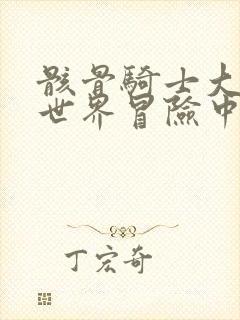 骸骨騎士大
世界冒險中
丁宏奇